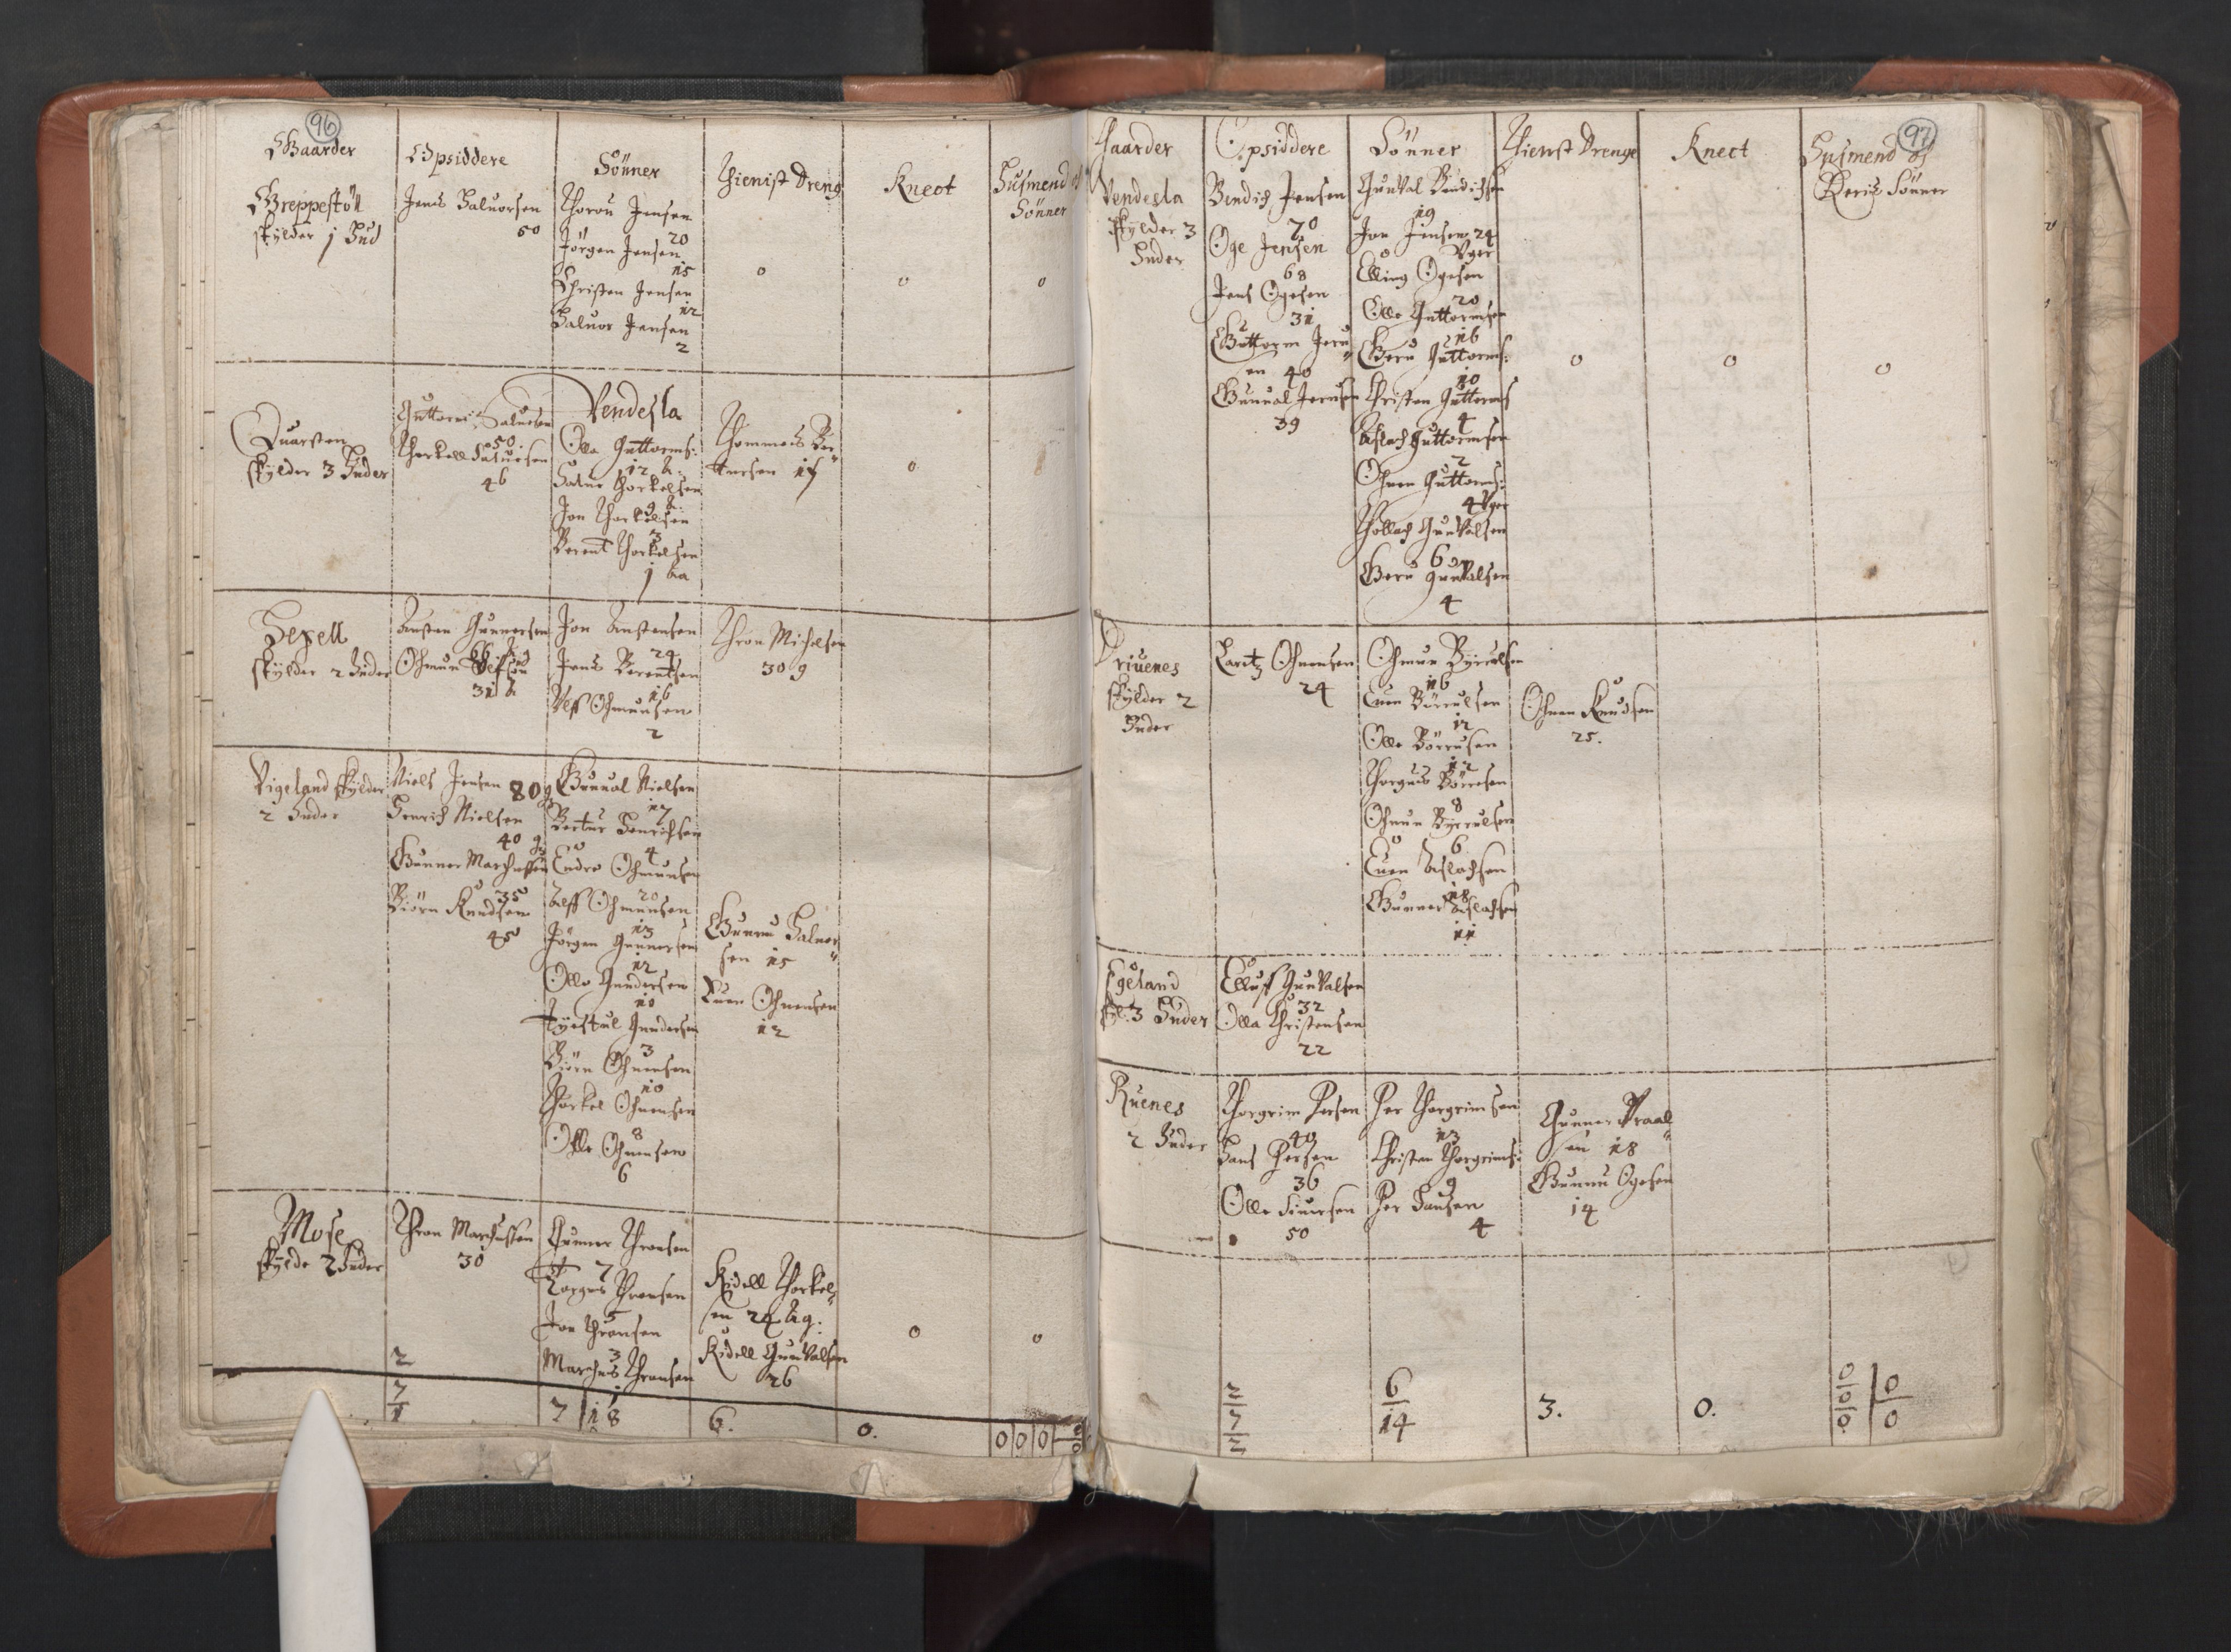 96
Gaarder
Opsiddere
Sönner
Thienist Dreng
Knect
Husmend
Sönner
Greppestöl
skylder j Hud
Jens Haluorsen
50
Thoron Jensen
20
Jörgen Jensen
15
Christen Jensen
12
Haluor Jensen
2
0
0
0
Quarsten
skylder 3 Huder
Guttorm Saluesen
50.
Thorkell Saluesen
46
Vendesla
Olle Guttorms:
12
Salue Thorkelsen
Jon Thorkelsen
3
Berent Thorkelsen
j
Thommes
17
0
0
skylder 2 Huder
Austen Gunnersen
66
Ohmun Ulfsen
31
Jon Austensen
24
Jens Berentsen
16
Ulff Ohmunsen
2
Thron Michelsen
30 g
Vigeland skylder
2 Huder
Niels Jensen 80
Henrich Nielsen
40
Gunner Marchussen
35
Biörn Knudsen
45
Gunual Nielsen
17
Henrichsen
4
Endre Ohmunsen
20
Alff Ohmunsen
13
Jörgen Gunnersen
12
Olle Gundersen
10
Kiestul Gundersen
3
Biörn Ohmensen
10
Thorkel Ohmensen
8
Olle Ohmensen
6
Haluor
sen 15
Euen Ohmensen
12
Mose
skylde 2 Huder
Thron Marchussen
30
Gunner Thronsen
7
Thronsen
5
Jon Thronsen
3
Marchus Thronsen
1
Kidell Thorkel
sen 24
Kidell Gunvalsen
26
0
0
2
7
1
7 18
6.
0.
0 0 0 0
97
Gaarder
Opsiddere
Sönner
Thienst Drenge
Knect
Husmend oc
Deris Sönner
Vendesla
skylder 3
Huder
Bendich Jensen
70
Oge Jensen
68
Jens Ogesen
31
Guttorm Jens
en 40
Gunual Jensen
39
Gunval Bendichsen
19
Jon Jensen 24
Vger
Elling Ogesen
20
Olle Guttormsen
16
Guttorms:
10
Christen Guttorms
4
Aslach Guttormsen
2
Ohmen Guttorms:
4 Vger
Thollach Gunvalsen
6
Gunvalsen
4
0
0
0
Driuenes
skylder 2
Huder
Laritz Ohmensen
24
Ohmun
16
Euen
12
Olle
12
8
Ohmun
6
Euen Aslachsen
18
Gunner Aslachsen
11
Ohmen Knudsen
25.
Egeland
3 Huder
Elluff Gunvalsen
32
Olle Christensen
22
Ruenes
2 Huder
Thorgrim Persen
40
Hans Persen
36
Olle Siuersen
50
Per Thorgrimsen
13
Christen Thorgrims:
9
Per Hansen
4
Gunner
sen 18
Ogesen
14
2
7
2
6
14
3.
0.
0 0 0
0 0